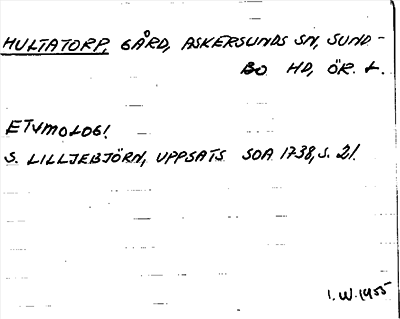 HULTATORP, GÅRD, ASKERSUNDS SN, SUND-
BO HD, ÖR. L.
ETYMOLOGI
S. LILLJEBJÖRN, UPPSATS SOA 1738, S. 21.
I.W. 1955